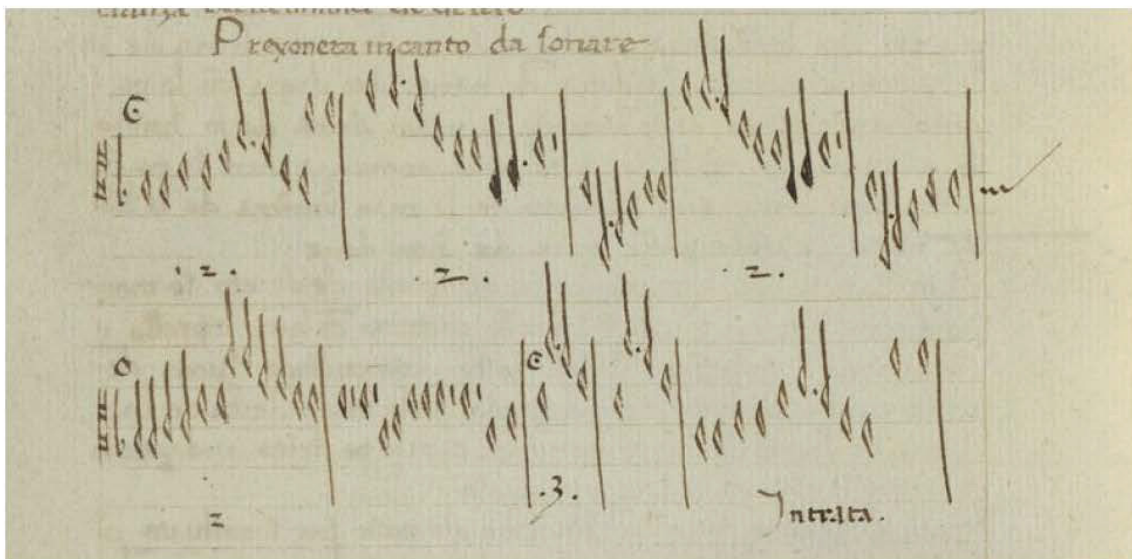 Preyonera in canto da sonare
.2.
2.
2.
2
.3.
Intrata.